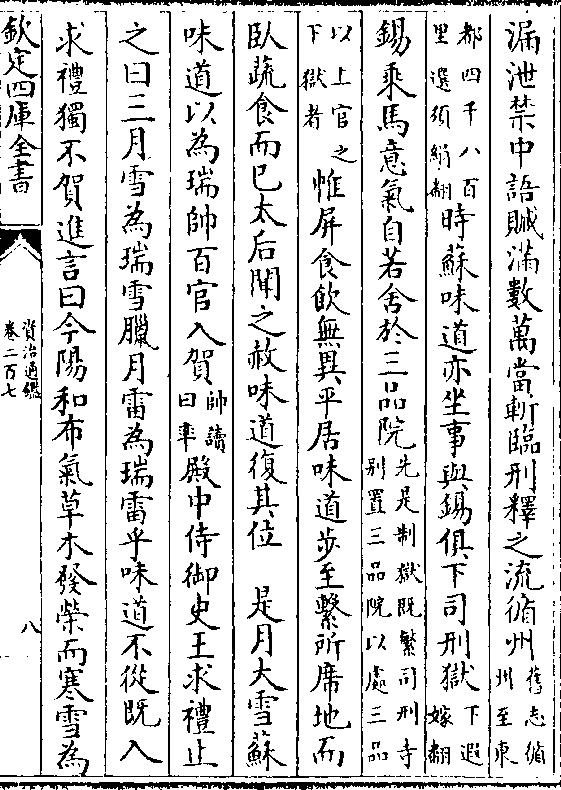 漏泄禁中語贓滿數萬當斬臨刑釋之流循州舊志循州至東
都四千八百里選須絹翻時蘇味道亦坐事與錫俱下司刑獄下遐嫁翻
錫乘馬意氣自若舍於三品院先是制獄既繁司刑寺别置三品院以處三品
以上官之下獄者惟屏食飲無異平居味道步至繫所席地而
臥蔬食而已太后聞之赦味道復其位 是月大雪蘇
味道以為瑞帥百官入賀帥讀曰率殿中侍御史王求禮止
之曰三月雪為瑞雪臘月雷為瑞雷乎味道不從既入
求禮獨不賀進言曰今陽和布氣草木發榮而寒雪為
欽定四庫全書
資治通鑑
卷二百七
八